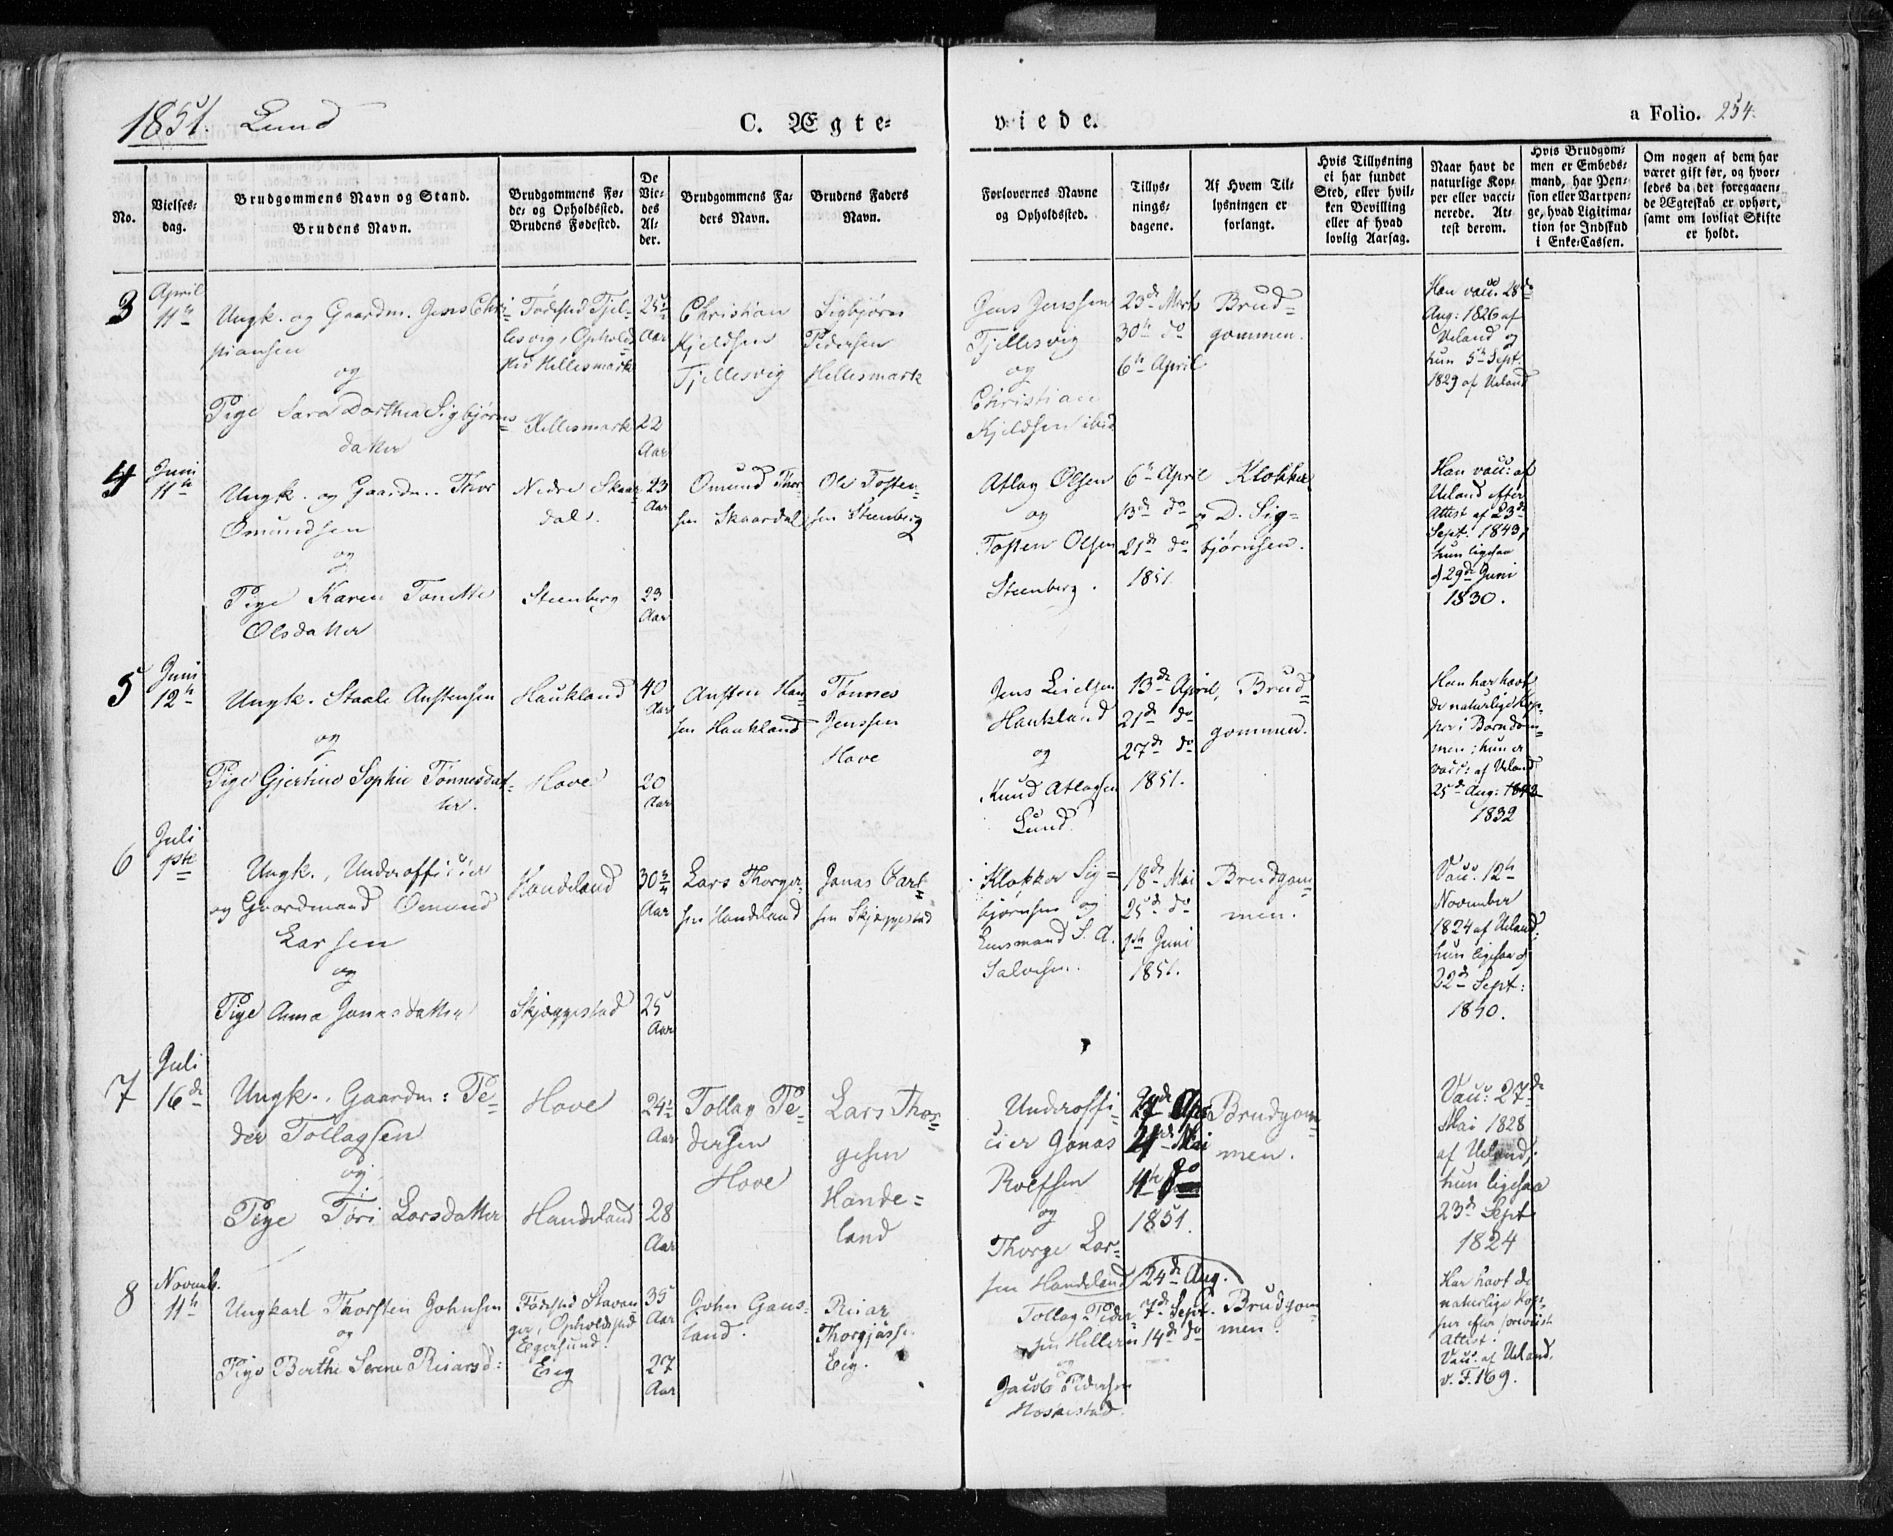 1851. Lund
C. Ægte=
viede.
a Folio. 254.
No.
Vielses=
dag.
Brudgommens Navn og Stand.
Brudens Navn.
Brudgommens Fø=
de= og Opholdssted.
Brudens Fødested.
De
Vie=
des
Al=
der.
Brudgommens Fa=
ders Navn.
Brudens Faders
Navn.
Forlovernes Navne
og Opholdssted.
Tillys=
nings=
dagene.
Af Hvem Til=
lysningen er
forlangt.
Hvis Tillysning
ei har fundet
Sted, eller hvil=
ken Bevilling
eller af hvad
lovlig Aarsag.
Naar havt de
naturlige Kop=
per eller vacci=
nerede. At=
test derom.
Hvis Brudgom=
men er Embeds=
mand, har Pen=
sion eller Vartpen=
ge, hvad Ligitima=
tion for Indskud
i Enke=Cassen.
Om nogen af dem har
været gift før, og hvor=
ledes da det foregaaen=
de Ægteskab er ophørt,
samt om lovligt Skifte
er holdt.
3
April
11te
Ungk. og Gaardm. Jens Chri=
stiansen
og
Pige Sara Dorthea Sigbjørns=
datter
Fødested Fjel=
lesvig, Opholds
sted Hellesmark
Hellesmark
25½
Aar
22
Aar
Christian
Kjeldsen
Fjellesvig
Sigbjørn
Pedersen
Hellesmark
Jens Jenssen
Fjellesvig
og
Christian
Kjeldsen ibid
23de Marts
30te do
6te April
Brud=
gommen.
Han vacc. 28de
Aug: 1826 af
Ueland og
hun 5te Sept.
1829 af Ueland
4
Juni
11te
Ungk. og Gaardm. Thor
Omundsen
og
Pige Karen Tonette
Olsdatter
Nedre Skaar
dal.
Steenberg
23
Aar
23
Aar
Omund Thor=
sen Skaardal
Ole Tosten=
sen Steenberg
Atlag Olsen
og
Tosten Olsen
Steenberg.
6te April
13de do
21de do
1851
Klokker
D. Sig=
bjørnsen.
Han vacc: af
Ueland efter
Attest af 23de
Sept. 1843,
hun ligesaa
d 29de Juni
1830.
5
Juni
12te
Ungk. Staale Anstensen
og
Pige Gjertine Sophie Tønnesdat=
ter.
Haukland
Hove
40
Aar
20
Aar
Ansten Han=
sen Haukland
Tønnes
Jenssen
Hove
Jens
Haukland
og
Knud Atlagsen
Lund.
13de April,
21de do
27de do
1851.
Brud=
gommen.
Han har havt
de naturlige Kop=
per i Barndom=
men; hun er
vacc: af Ueland
25de Aug:
1832
6
Juli
1ste
Ungk., Underofficier
og Gaardmand Omund
Larsen
og
Pige Anna Jonasdatter
Handeland
Skjæggestad
30¾
Aar
25
Aar
Lars Thorger
sen Handeland
Jonas Carl=
sen Skjæggestad
Klokker Sig=
bjørnsen og
Lensmand S. A.
Salvesen.
18de Mai
25de do
1ste Juni
1851.
Brudgom=
men.
Vacc. 12te
November
1824 af Ueland;
hun ligesaa d
22de Sept:
1840.
7
Juli
16de
Ungk., Gaardm: Pe=
der Tollagsen
og
Pige Tøri Larsdatter
Hove
Handeland
24½
Aar
28
Aar
Tollag Pe=
dersen
Hove
Lars Thor=
gesen
Hande=
land
Underoffi=
cier Jonas
Roefsen
og
Thorge Lar=
sen Handeland
11te do
1851.
Brudgom=
men.
Vacc: 27de
Mai 1828
af Ueland,
hun ligesaa
23de Sept
1824
8
Novemb.
11te
Ungkarl Thorsten Johnsen
og
Pige Berthe Serene Reiarsd:
Fødested Stavan=
ger, Opholdssted
Egersund.
Eeg
35
Aar
27
Aar
John Gaus=
land.
Reiar
Eeg.
Tollag Peder=
sen Helleren
og
Jacob Pedersen
Moskestad.
24de Aug.
7de Sept.
14de do
Brudgom
men.
Har havt de
naturlige Kop=
per efter foreviist
Attest.
Vacc. af Ueland.
v. F. 169.